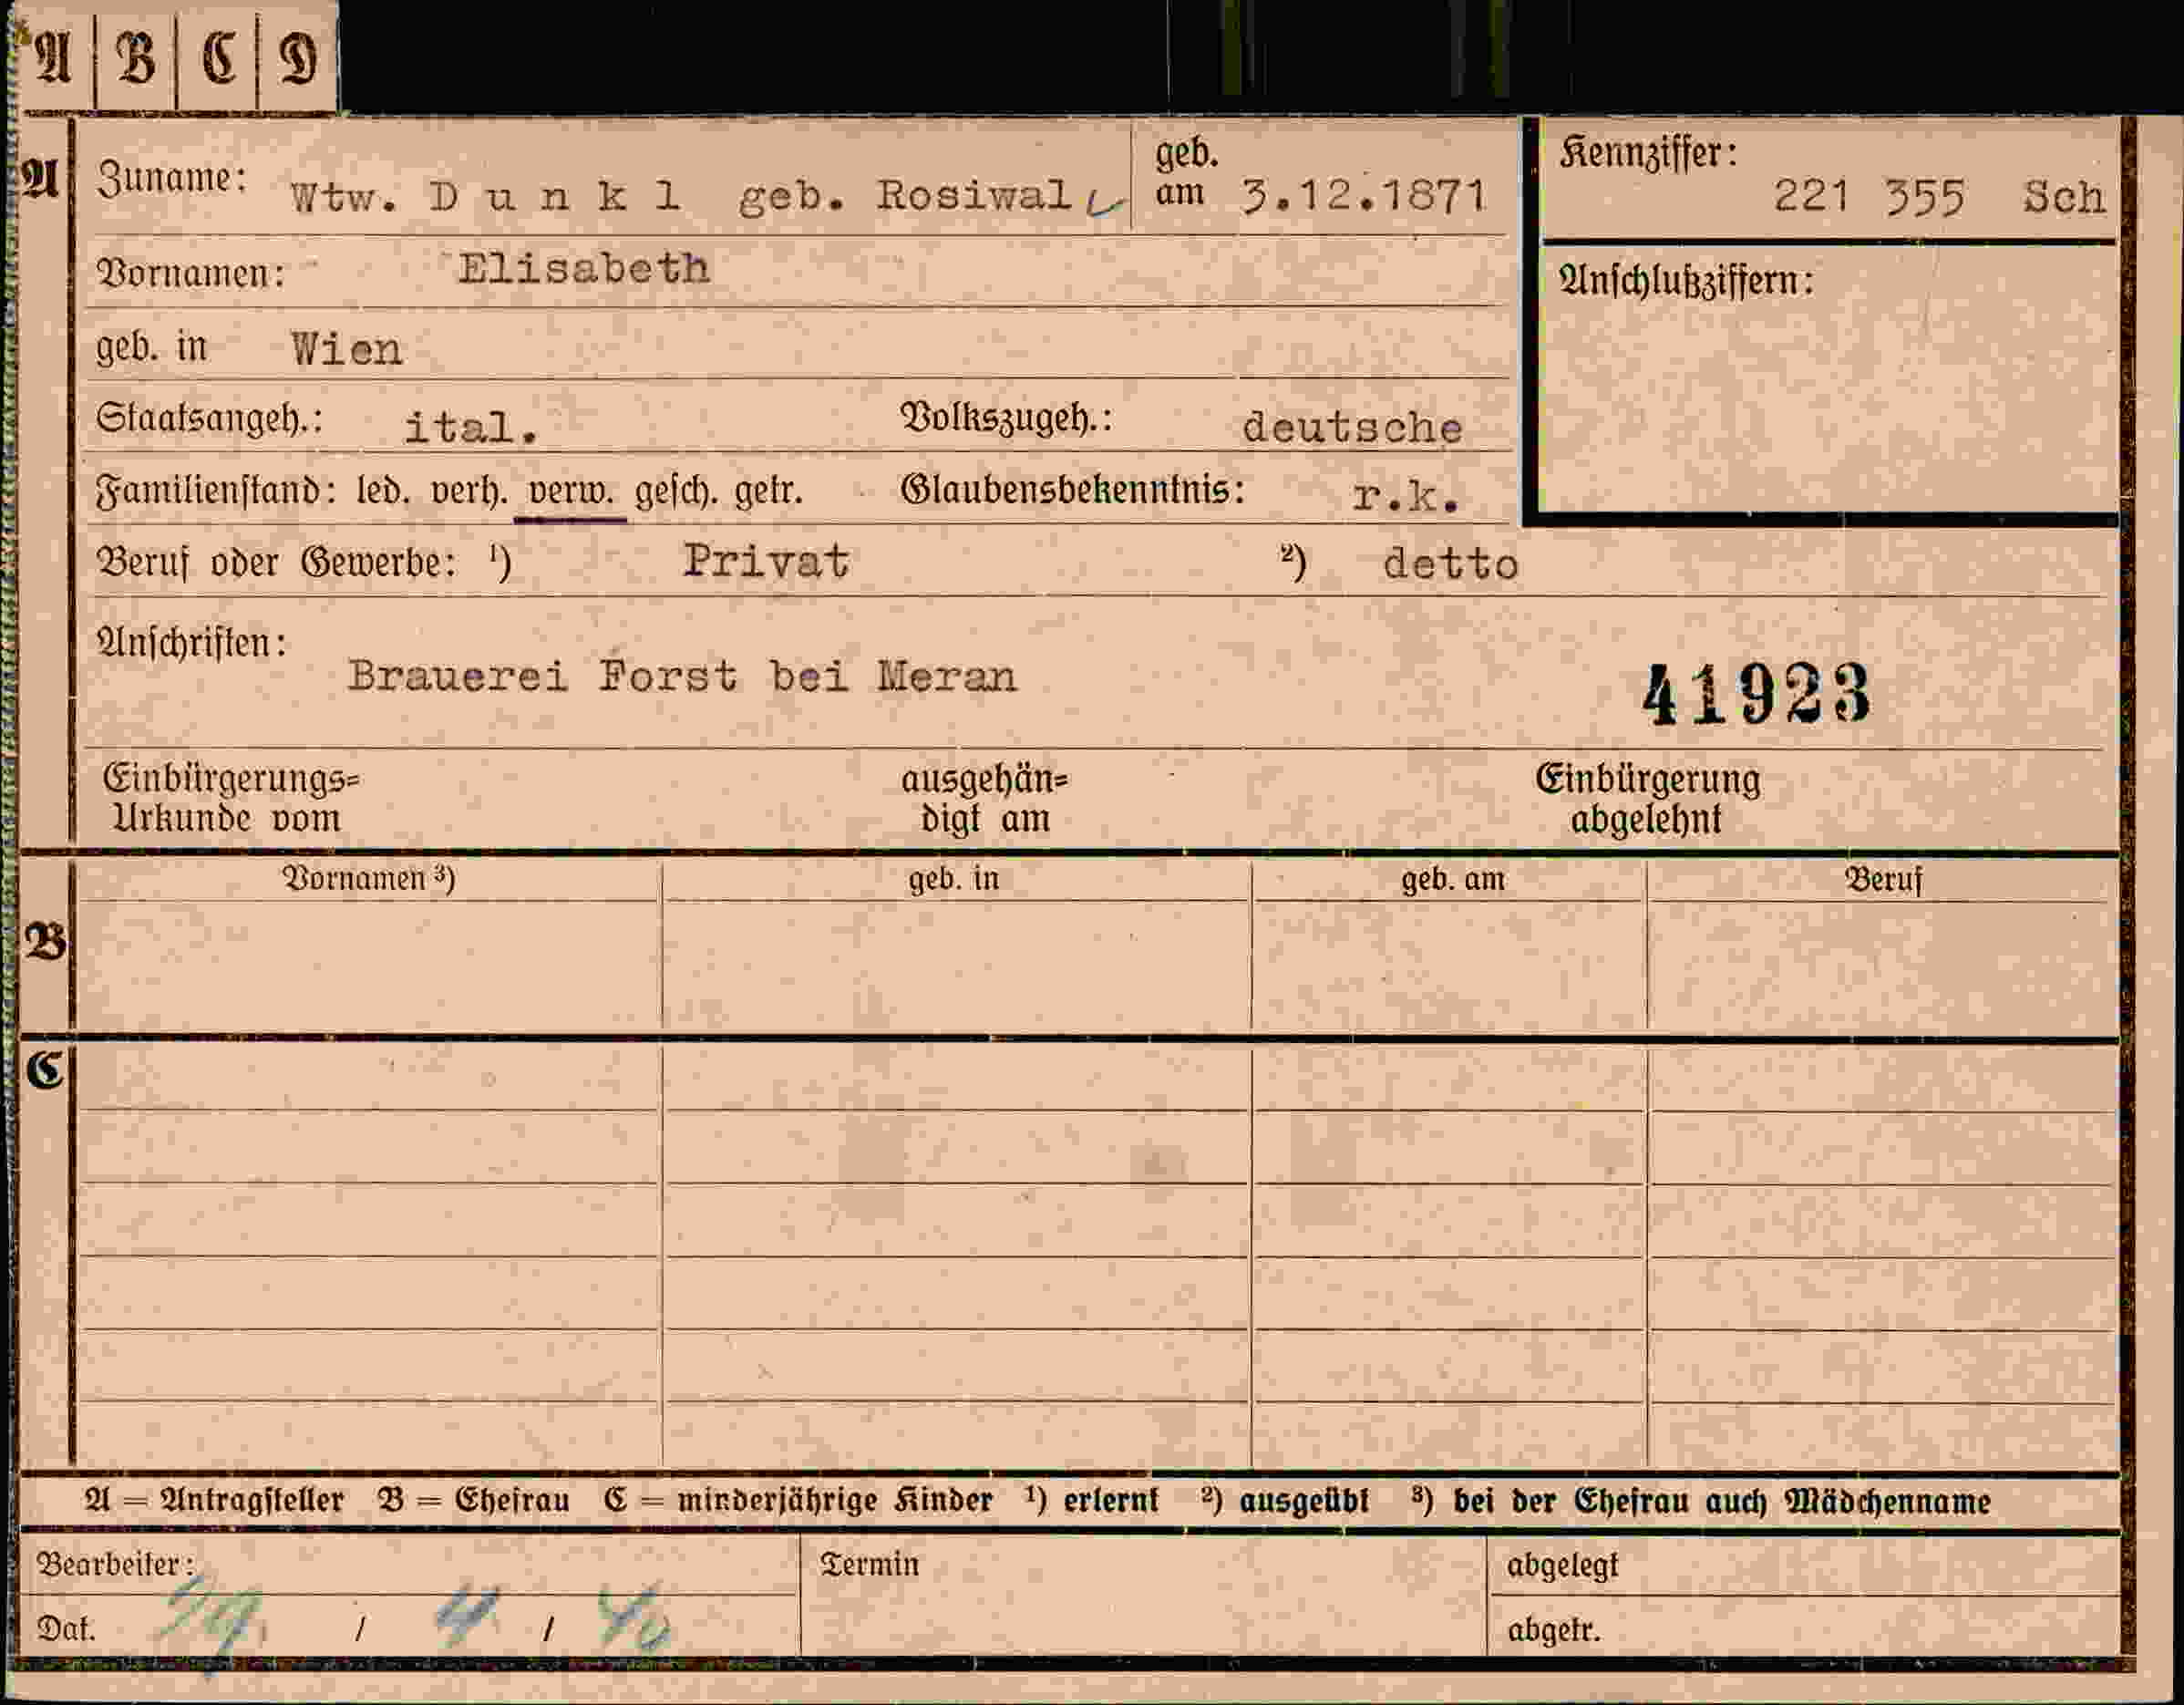 A | B | C | D
A Zuname: Wtw. D u n k l geb. Rosiwal geb. am 3.12.1871
Kennziffer: 221 355 Sch
Vornamen: Elisabeth
Anschlußziffern:
geb. in Wien
Staatsangeh.: ital. Volkszugeh.: deutsche
Familienstand: led. verh. verw. gesch. getr. Glaubensbekenntnis: r.k.
Beruf oder Gewerbe: ¹) Privat ²) detto
Anschriften:
Brauerei Forst bei Meran 41923
Einbürgerungs= ausgehän= Einbürgerung
Urkunde vom digt am abgelehnt
Vornamen ³) geb. in geb. am Beruf
B
C
A = Antragsteller B = Ehefrau C = minderjährige Kinder ¹) erlernt ²) ausgeübt ³) bei der Ehefrau auch Mädchenname
Bearbeiter: Termin abgelegt
Dat. / 4 / 40 abgetr.